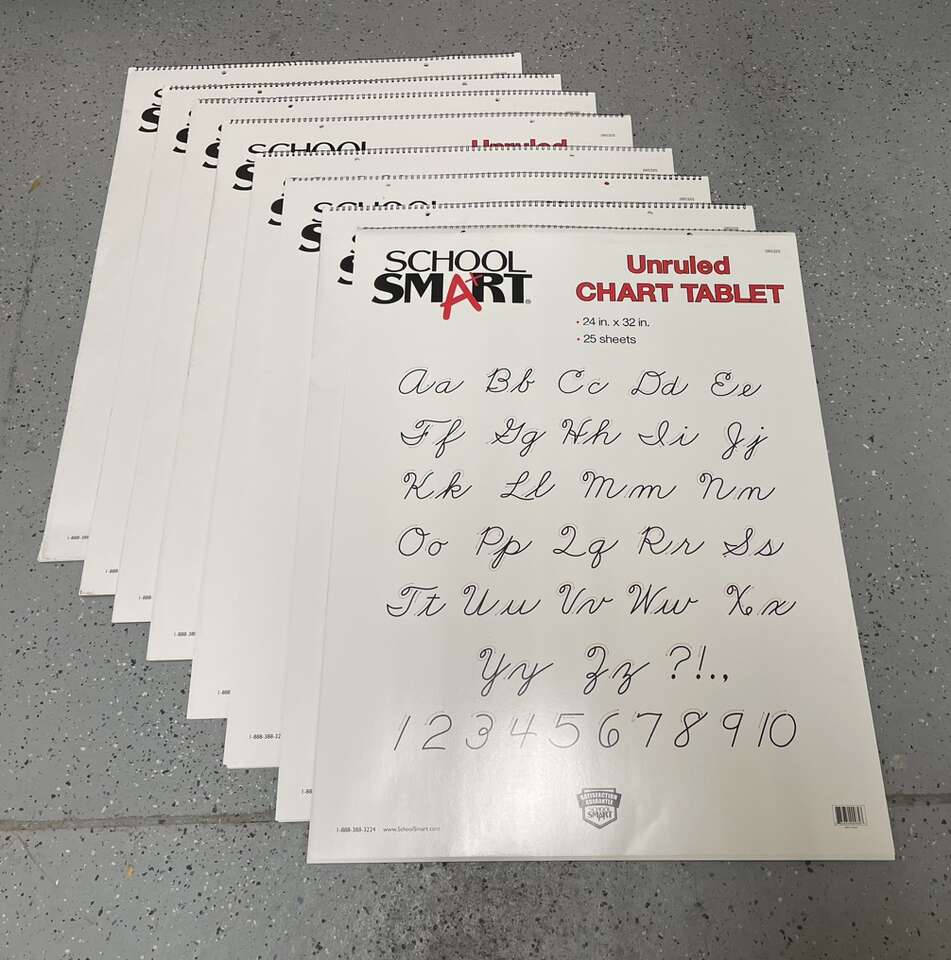 SCHOOL
Unruled
SCHOOL
SMART
Unruled
CHART TABLET
085325
• 24 in. x 32 in.
• 25 sheets
Aa Bb Cc Dd Ee
Ff Gg Hh Ii Jj
Kk Ll Mm Nn
Oo Pp Qq Rr Ss
Tt Uu Vv Ww Xx
Yy Zz ?!.,
1 2 3 4 5 6 7 8 9 10
SATISFACTION
GUARANTEE
SCHOOL
SMART
1-888-388-3224 www.SchoolSmart.com